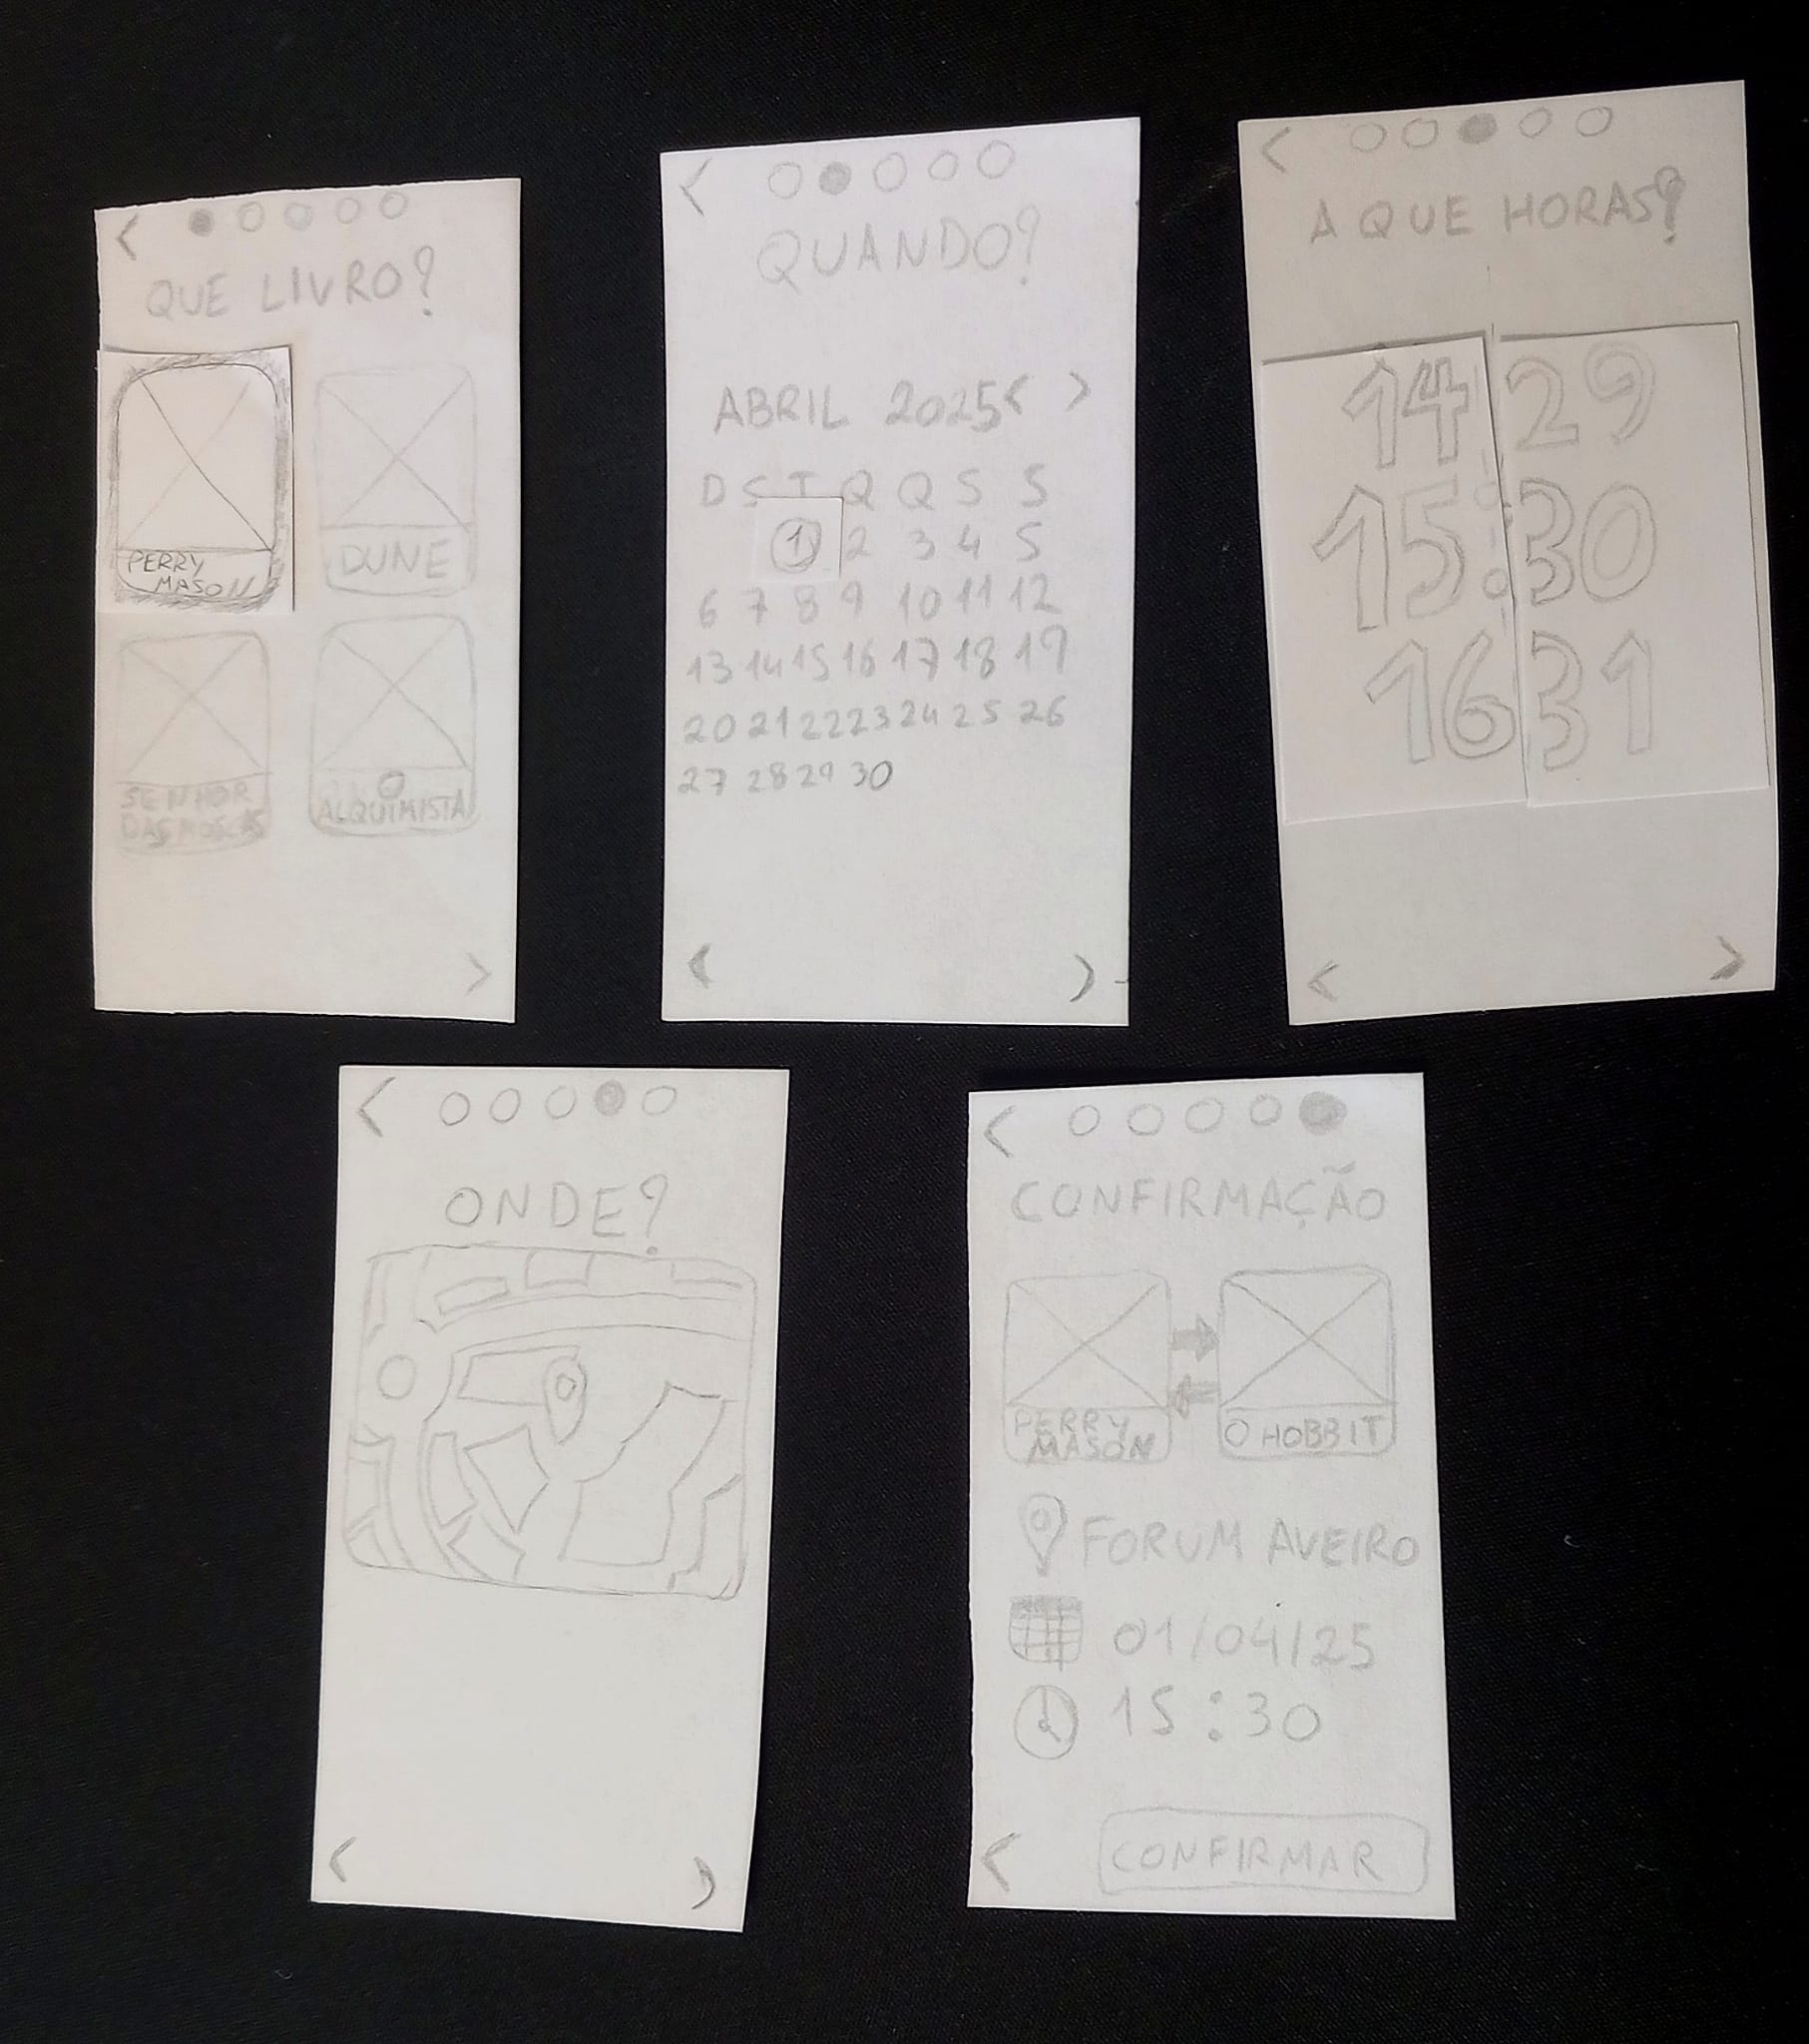 QUE LIVRO?
PERRY
MASON
DUNE
SENHOR
DAS MOSCAS
O
ALQUIMISTA
QUANDO?
ABRIL 2025 < >
D S T Q Q S S
1 2 3 4 5
6 7 8 9 10 11 12
13 14 15 16 17 18 19
20 21 22 23 24 25 26
27 28 29 30
A QUE HORAS?
14 29
15:30
16 31
ONDE?
CONFIRMAÇÃO
PERRY
MASON
O HOBBIT
FORUM AVEIRO
01/04/25
15:30
CONFIRMAR